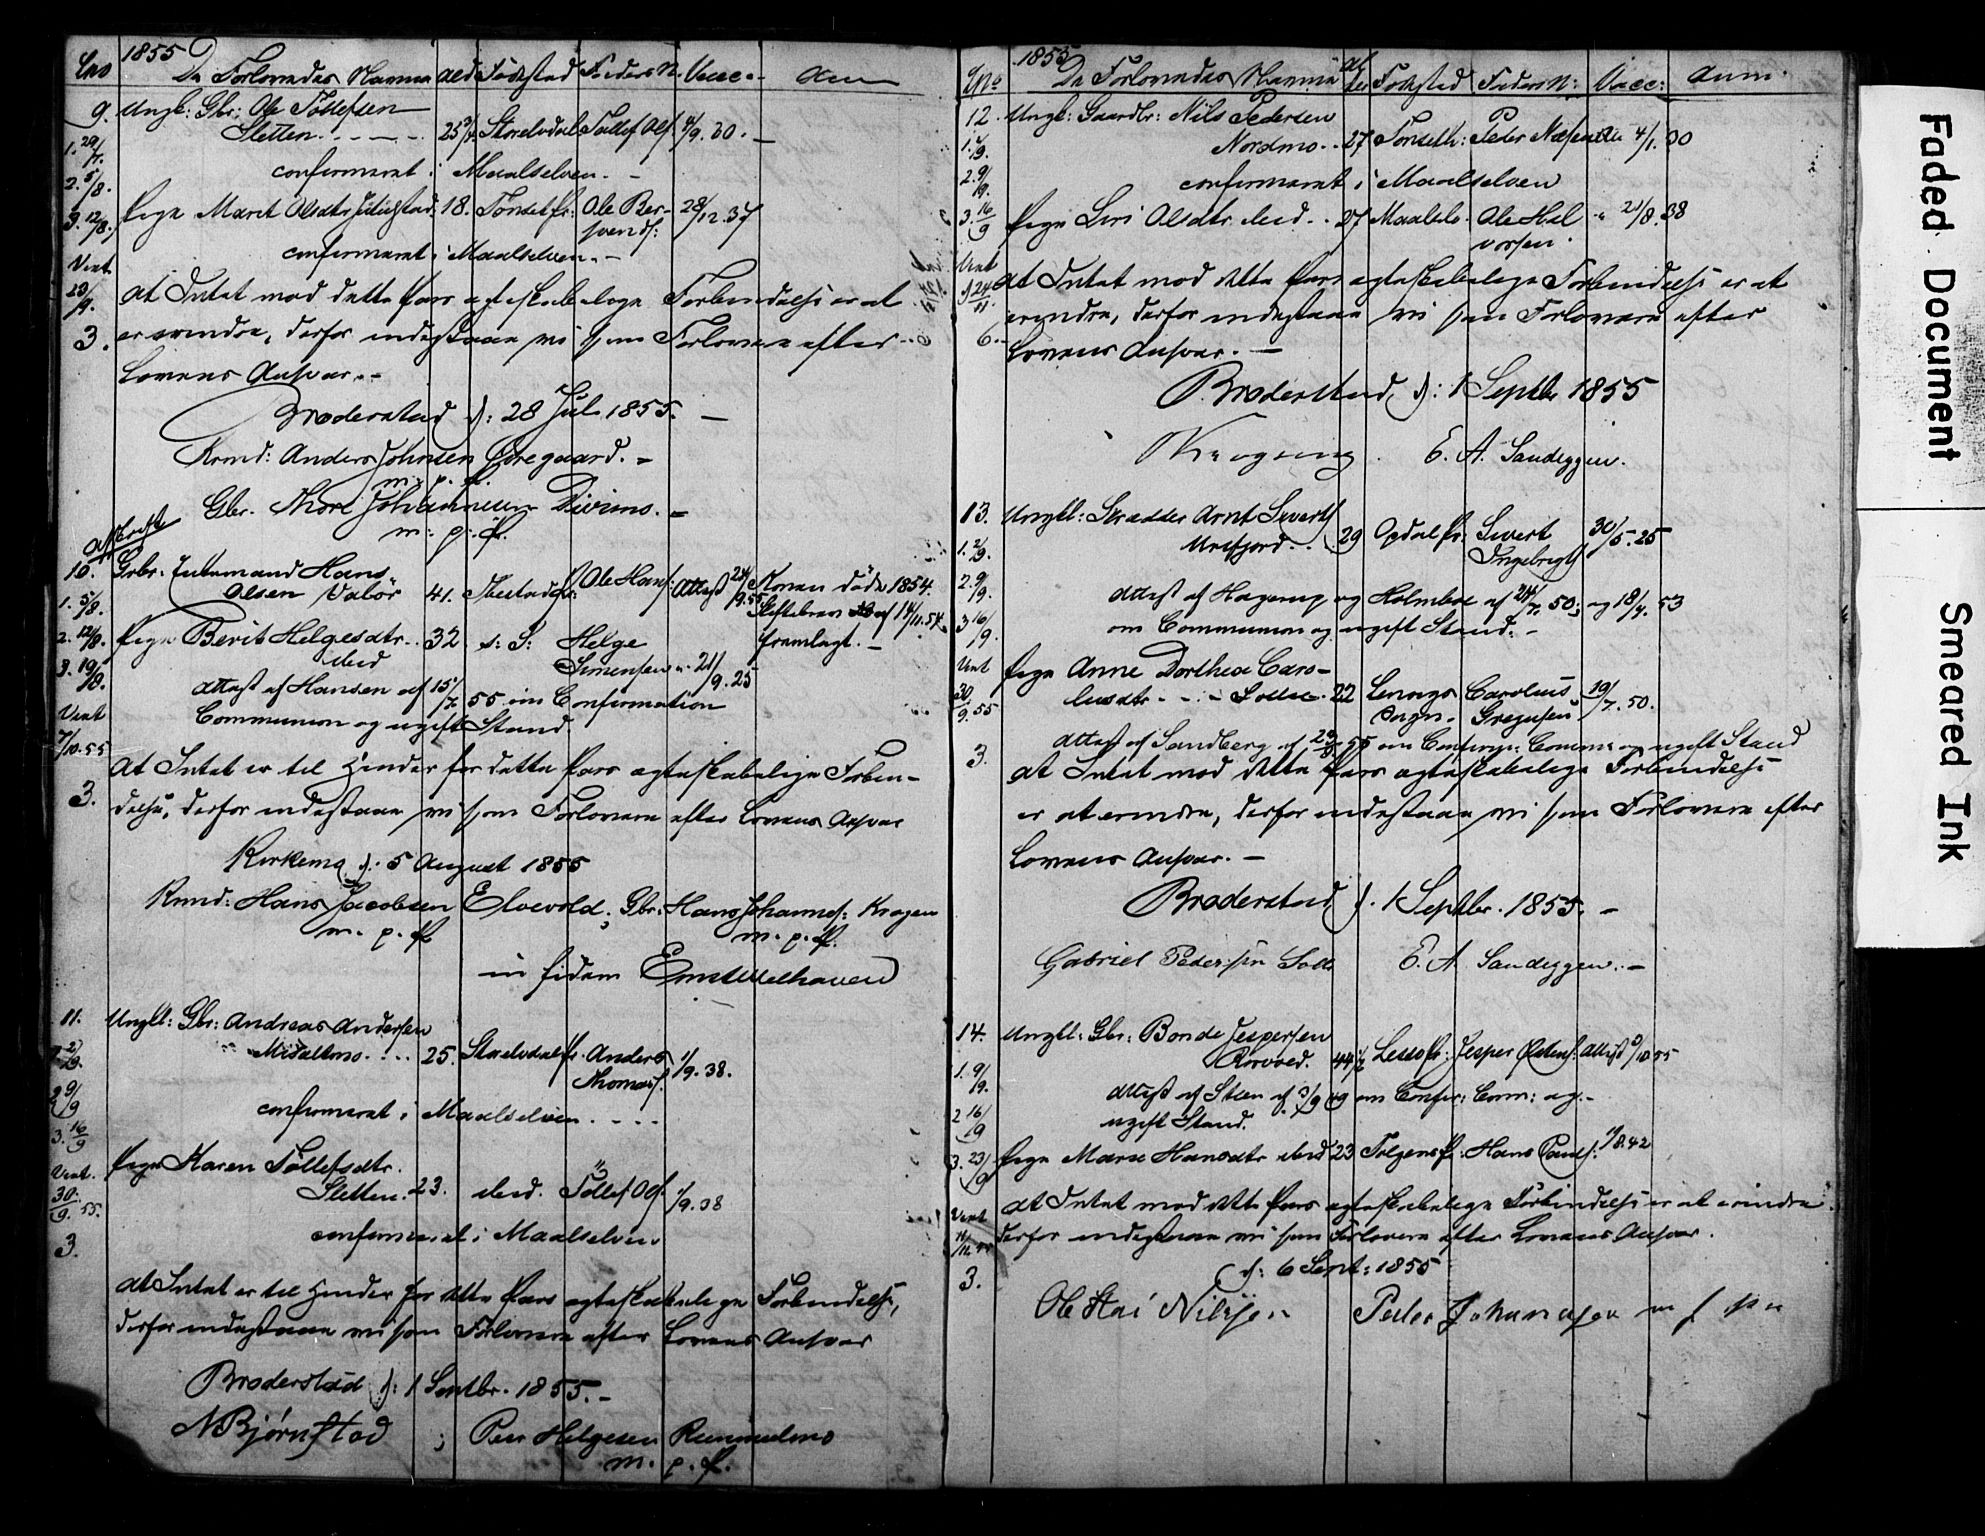 1855
No De Forlovedes Navne Ald Fødested Faders N. Vacc. Anm
9. Ungk: Gbr: Ole Tollefsen
Sletten. 25 3/4 Storelvdal Tollef Ols. 4/9. 30. –
1. 29/7.
confirmeret i Maalselven. –
2. 5/8.
3. 12/8. Pige Marit Olsdtr 18. Tønset Pr: Ole Ber- 28/12. 37
svends:
confirmeret i Maalselven. –
Viet
23/9.
At Intet mod dette Pars ægteskabelige Forbindelse er at
3. erindre, derfor indestaae vi som Forlovere efter
Lovens Ansvar. –
Broderstad d: 28 Juli 1855. –
Krmd: Anders Johnsen Øregaard. –
m. p. P.
Gbr. Thore Johannesen Divimo. –
m. p. P.
10. Gbr. Enkemand Hans
Olsen Valør 41. Ibestad Pr: Ole Hans: Attest 24/9.55 Konen døde 1854.
1. 5/8.
Skiftebrev af 14/11.54
2. 12/8. Pige Berit Helgesdtr. 32 s: S: Helge fremlagt. –
ibid Simensen 21/9. 25
3. 19/8.
Attest af Hansen af 15/7 55 om Confirmation
Viet Communion og ugift Stand.
7/10.55
At Intet er til Hinder for dette Pars ægteskabelige Forbin-
3. delse, derfor indestaae vi som Forlovere efter Lovens Ansvar
Kirkemo d: 5 August 1855
Krmd: Hans Jacobsen Elvevold; Gbr: Hans Johannes: Krogen
m. p. P. m. p. P.
in fidem Ernst Welhaven
11. Ungk: Gbr: Andreas Andersen
Moaltmo. 25. Storelvdal Pr. Anders 1/9. 38.
Thomas:
1. 2/9.
2. 9/9
confirmeret i Maalselven. . . .
3. 16/9
Viet. Pige Karen Tollefsdtr.
Sletten. 23. ibid. Tollef Ols. 1/9. 38
30/9. 55.
confirmeret i Maalselven
3.
At Intet er til Hinder for dette Pars ægteskabelige Forbindelse,
derfor indestaae vi som Forlovere efter Lovens Ansvar
Broderstad d: 1 Septbr. 1855. –
N Bjørnstad ; Peer Helgesen Rummelmo
m. p. P.
1855
No De Forlovedes Navne Alder Fødested Faders N: Vacc: Anm.
12. Ungk: Gaardbr: Nils Pedersen
Nordmo. . 27 Tønseth: Peder 4/1. 30
1. 2/9.
confirmeret i Maalselven
2. 9/9.
3. 16/9 Pige Siri Olsdtr. ibid. . 27 Maalselv. Ole Hal 21/8. 38
vorsen.
Viet
24/11
At Intet mod dette Pars ægteskabelige Forbindelse er at
erindre, derfor indestaae vi som Forlovere efter
6. Lovens Ansvar. –
Broderstad, d: 1 Septbr 1855
E. A. Sandeggen.
13. Ungkl: Skrædder Arnt Siverts
Malfjord. . 29 Opdal Pr: Sivert 30/5. 25
Ingebrigts
1. 2/9.
2. 9/9.
Attest af Hagerup og Holmboe af 24/7. 50; og 18/7. 53
3. 16/9. om Communion og ugift Stand. –
Viet Pige Anne Dorthea Caro-
liusdtr. - - - 22 Lenvigs Carolius 19/7. 50.
Sogn. Gregusen
30/9. 55
Attest af Sandberg af 29/8 55 om Confirm: Comm: og ugift Stand
3. At Intet mod dette Pars ægteskabelige Forbindelse
er at erindre, derfor indestaae vi som Forlovere efter
Lovens Ansvar. –
Broderstad, d. 1 Septbr. 1855. –
Gabriel Pedersen E. A Sandeggen. –
14. Ungkl: Gbr: Bonde Jespersen
Rosvoed. 44 1/2 Lesso Pr: Jesper Attest 3/10 55
1. 9/9.
Attest af Steen af 3/9 49 om Confir: Com: og
2. 16/9 ugift Stand.
3. 23/9 Pige Mari Hansdtr ibid 23 Tolgens Pr: Hans Pauls: 9/8.42
At Intet mod dette Pars ægteskabelige Forbindelse er at erindre
Viet derfor indestaae vi som Forlovere efter Lovens Ansvar.
d: 6 Sept: 1855
3.
Ole Nilsen Peder Johannesen
Faded Document
Smeared Ink